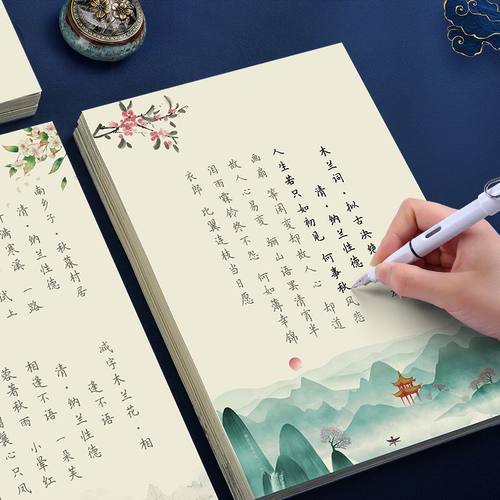 木兰词·拟古决绝
清·纳兰性德
人生若只如初见 何事秋风悲
画扇 等闲变却故人心 却道
故人心易变 骊山语罢清宵半
泪雨霖铃终不怨 何如薄幸锦
衣郎 比翼连枝当日愿
南乡子·秋暮村居
清·纳兰性德
满寒溪 一路
试上
减字木兰花·相
逢不语
清·纳兰性德
相逢不语 一朵芙
蓉著秋雨 小晕红
心只凤